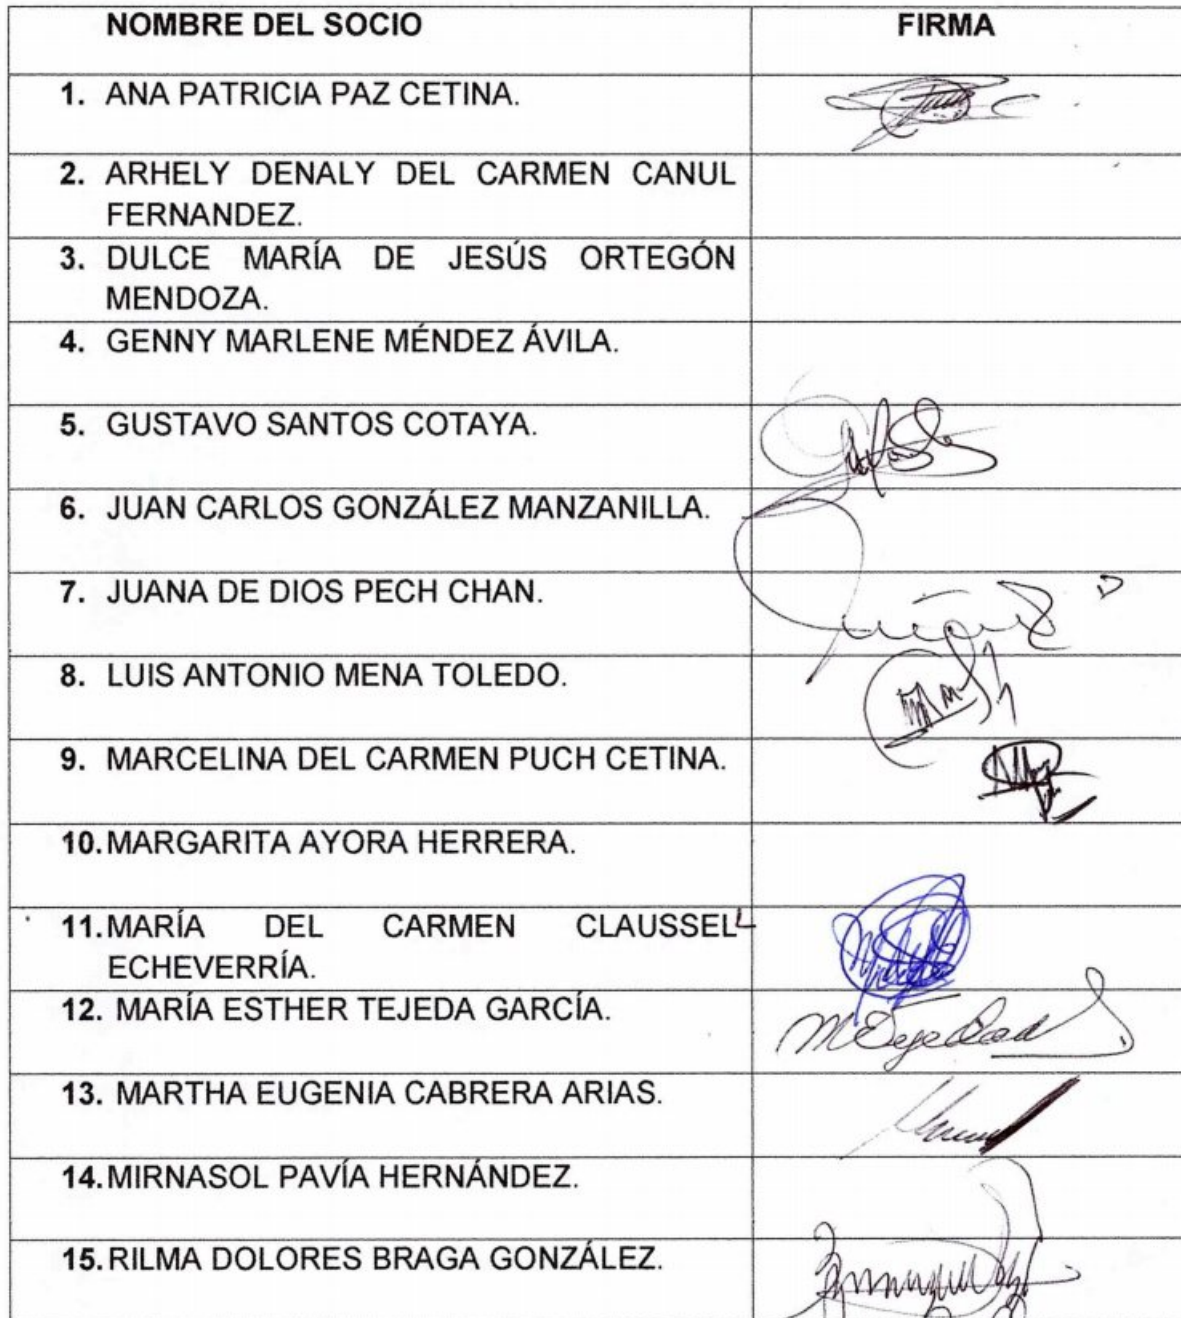 NOMBRE DEL SOCIO FIRMA
1. ANA PATRICIA PAZ CETINA.
2. ARHELY DENALY DEL CARMEN CANUL
FERNANDEZ.
3. DULCE MARÍA DE JESÚS ORTEGÓN
MENDOZA.
4. GENNY MARLENE MÉNDEZ ÁVILA.
5. GUSTAVO SANTOS COTAYA.
6. JUAN CARLOS GONZÁLEZ MANZANILLA.
7. JUANA DE DIOS PECH CHAN.
8. LUIS ANTONIO MENA TOLEDO.
9. MARCELINA DEL CARMEN PUCH CETINA.
10. MARGARITA AYORA HERRERA.
11. MARÍA DEL CARMEN CLAUSSELL
ECHEVERRÍA.
12. MARÍA ESTHER TEJEDA GARCÍA.
13. MARTHA EUGENIA CABRERA ARIAS.
14. MIRNASOL PAVÍA HERNÁNDEZ.
15. RILMA DOLORES BRAGA GONZÁLEZ.